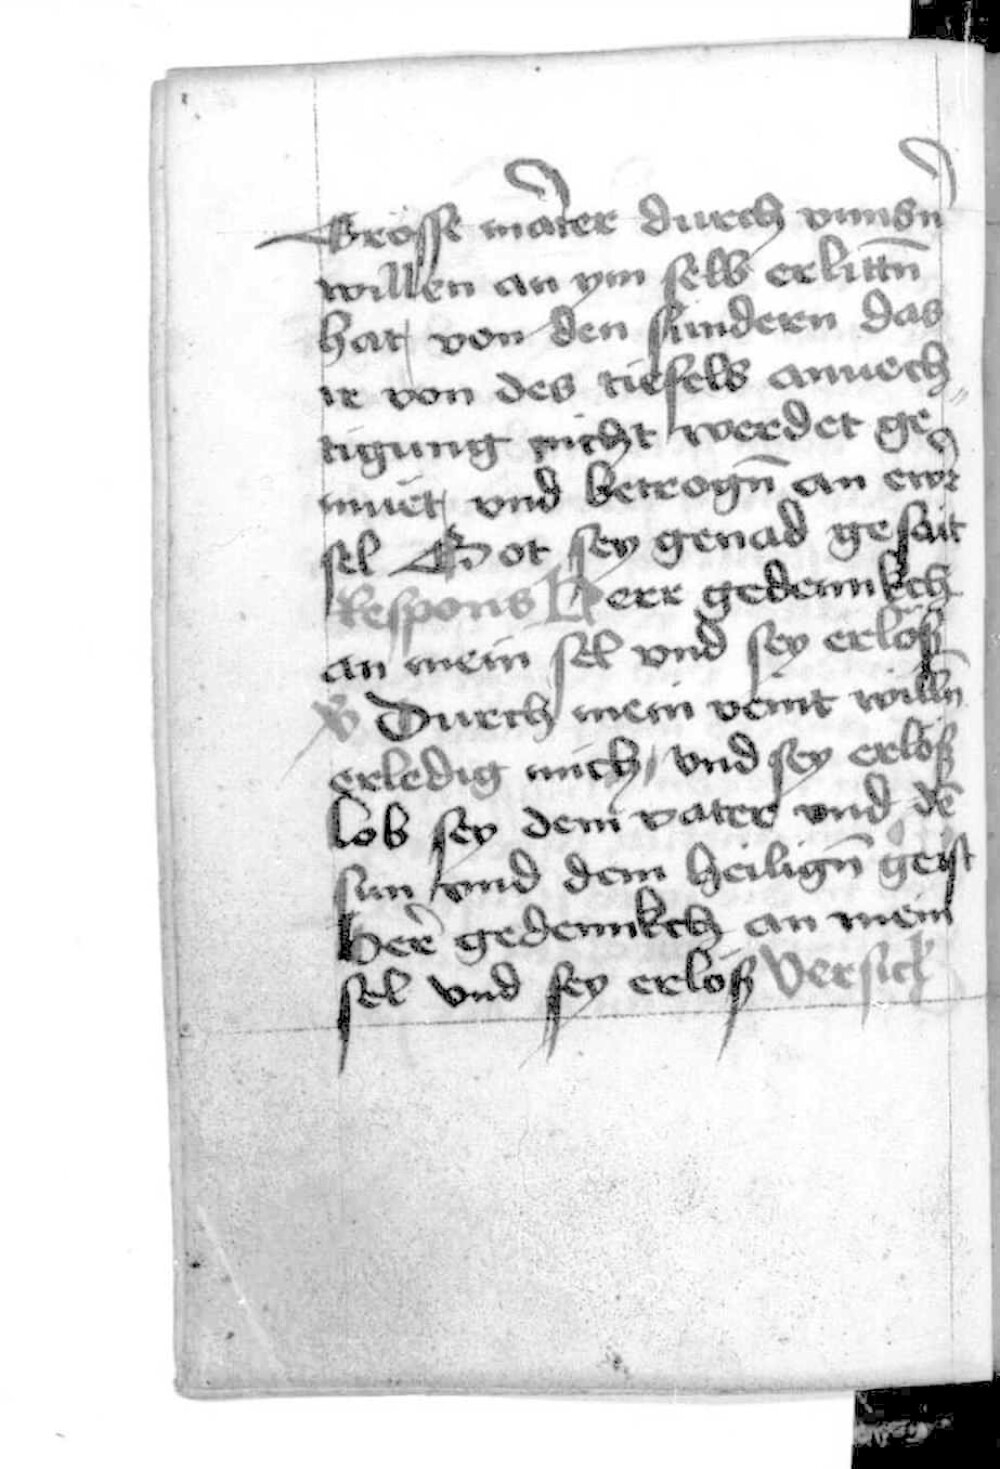 Grosse marter durch vnnsn̄
willen an ym selb erlittn̄
hat von den sundern das
ir von des tiefels anuech„
tigung nicht werdet ge„
muet vnd betrogn̄ an ewr
sel Got sey genad gesait
Respons Herr gedennkch
an mein sel vnd sey erlöß
℣ Durch mein veint willn̄
erledig mich / vnd sey erlöß
lob sey dem vater vnd dē
sun vnd dem heilign̄ geist
Her̄ gedennkch an mein
sel vnd sey erlöß Versick